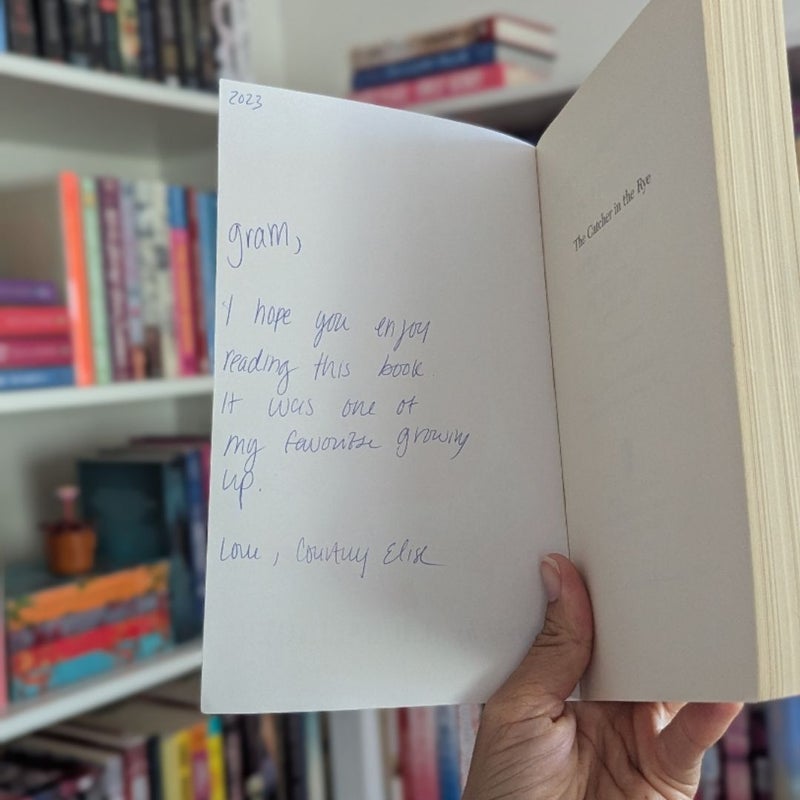 2023
gram,
I hope you enjoy
reading this book.
It was one of
my favorite growing
up.
Love, Courtney Elise
The Catcher in the Rye